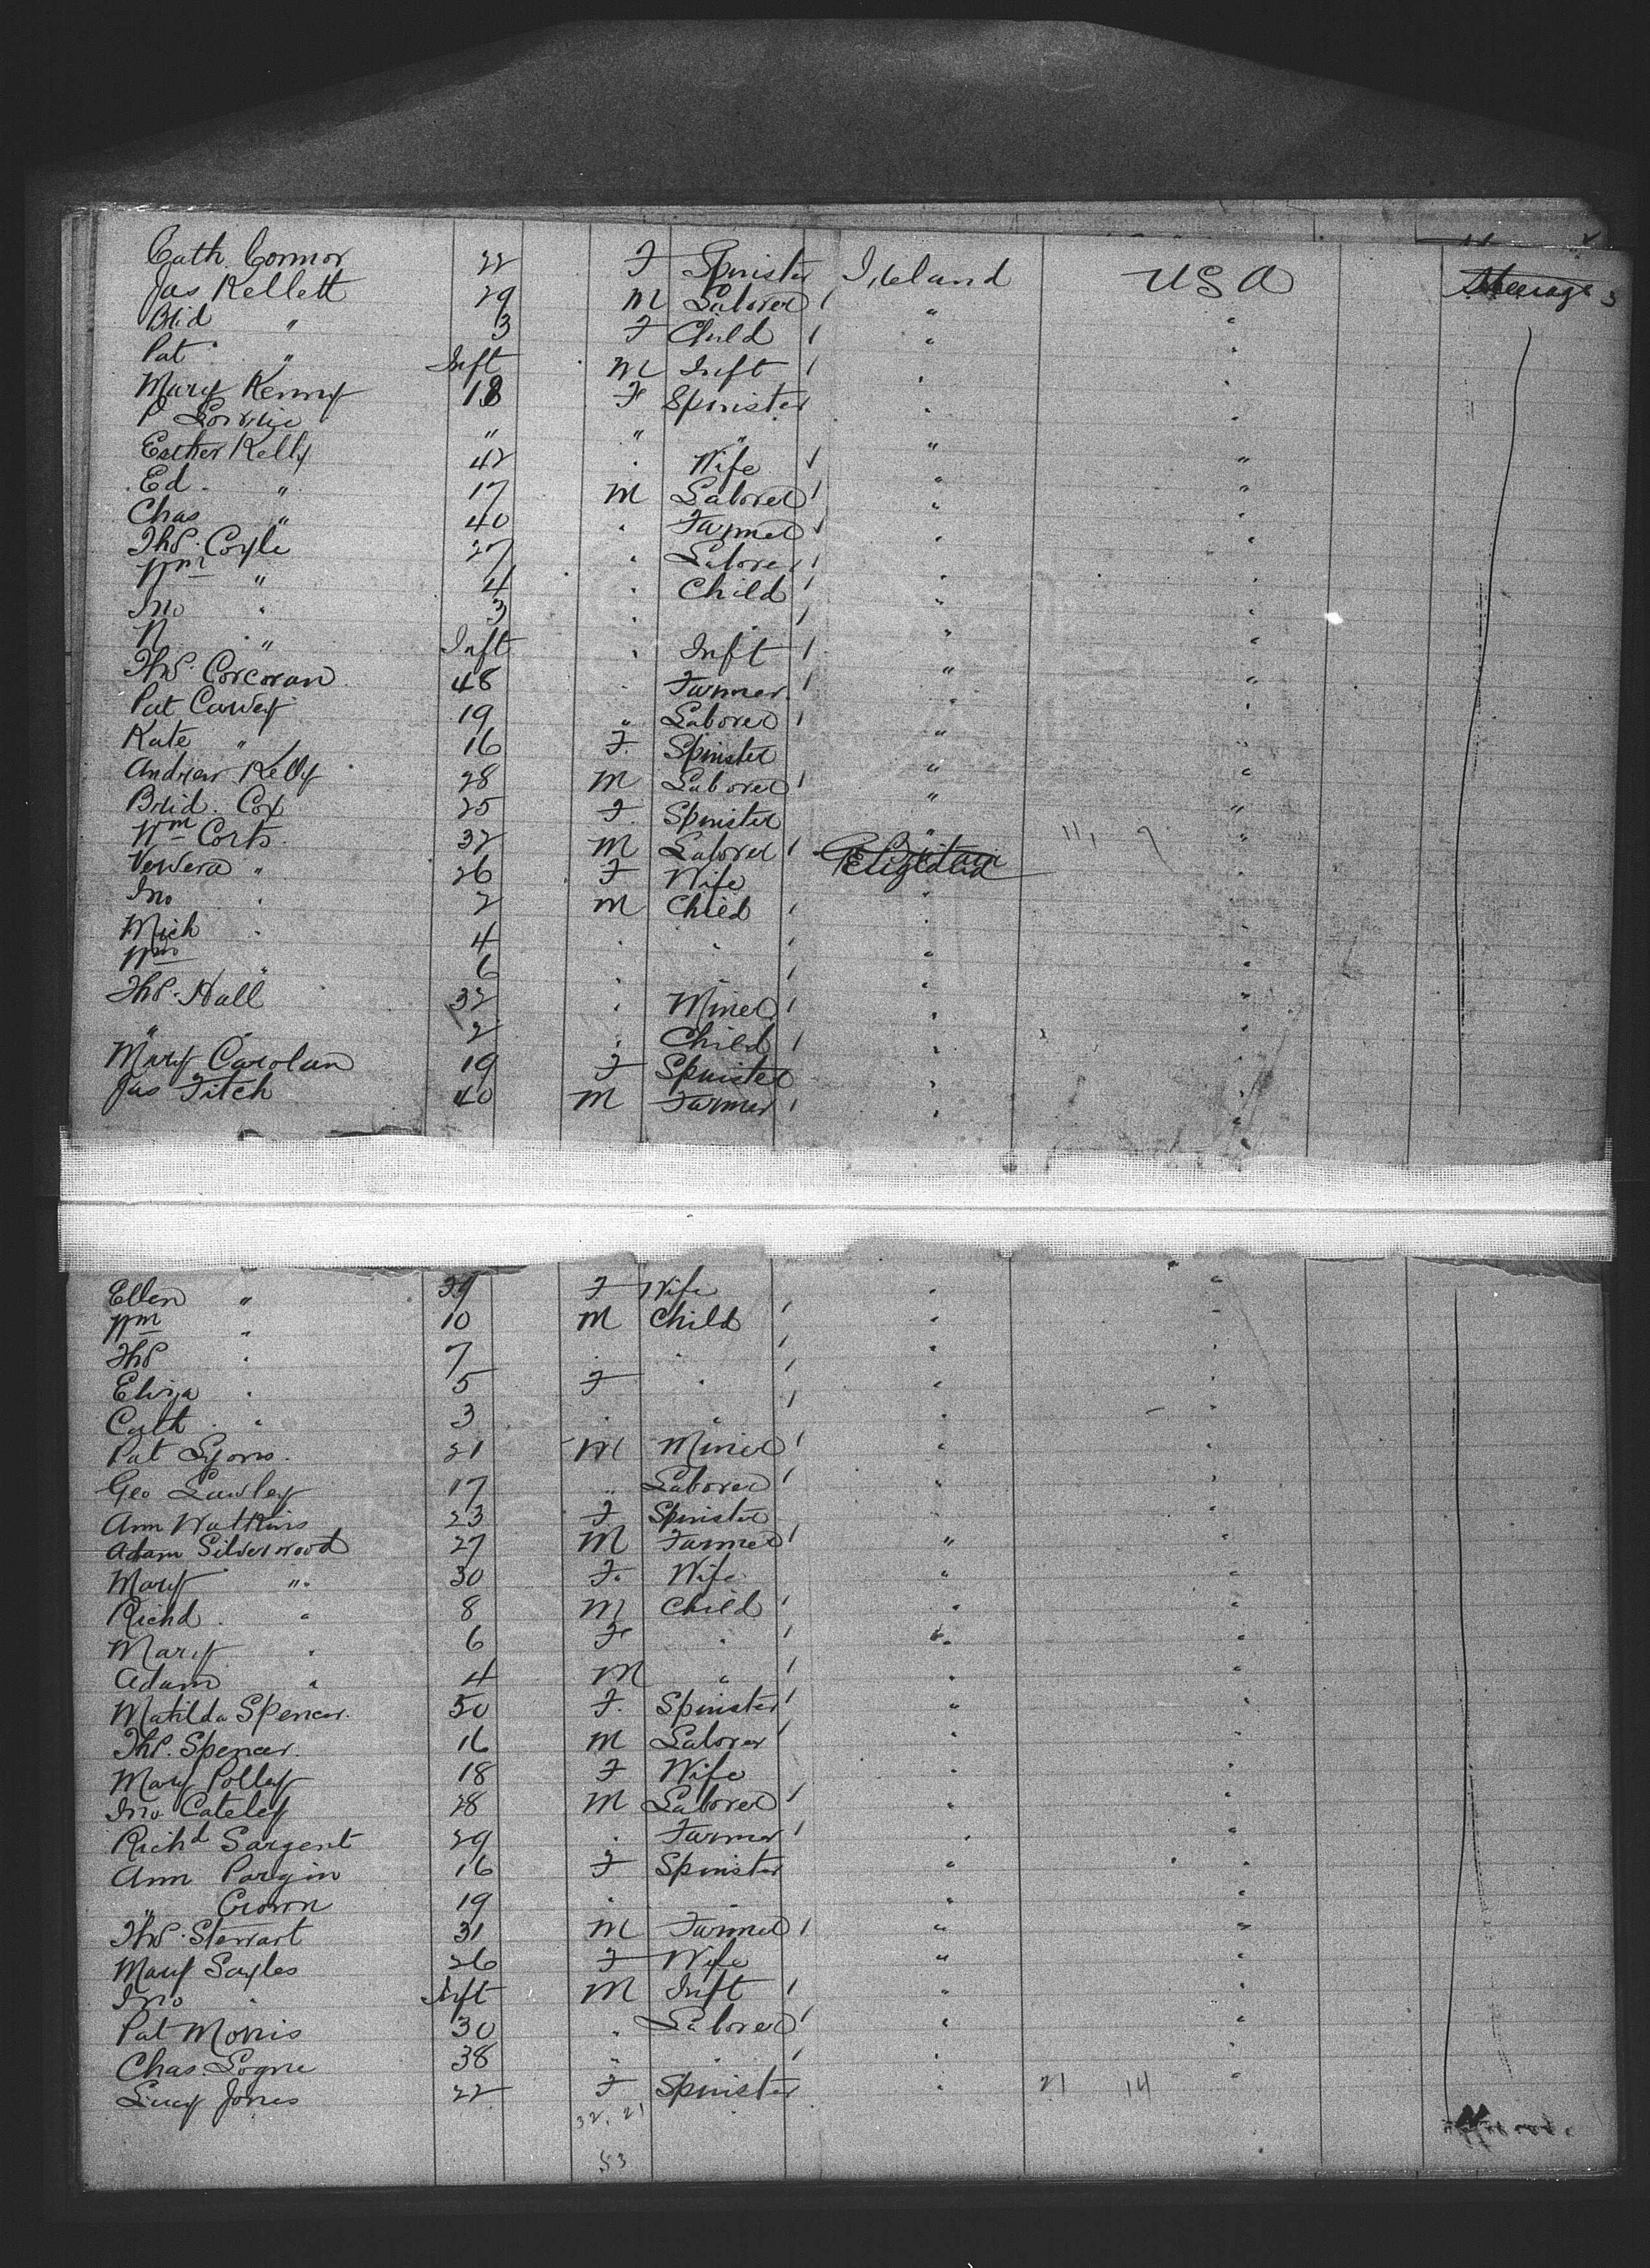 Cath Connor 22 F Spinister Ireland USA Steerage
Jas Kellett 29 M Laborer " "
Brid " 3 F Child " "
Pat " Inft M Inft " "
Mary Kenny 18 F Spinister " "
P " " " " "
Esther Kelly 42 " Wife " "
Ed " 17 M Laborer " "
Chas " 40 " Farmer " "
Thos Coyle 27 " Laborer " "
Wm " 4 " Child " "
Jno " 3 " " " "
N " Inft " Inft " "
Thos Corcoran 48 " Farmer " "
Pat Carvey 19 " Laborer " "
Kate " 16 F Spinister " "
Andrew Kelly 28 M Laborer " "
Brid. Cox 25 F Spinister " "
Wm Corts 32 M Laborer England 11, 7 "
" 26 F Wife " "
Jno " 2 M Child " "
Mich " 4 " " " "
Wm " 6 " " " "
Thos Hall 32 " Miner " "
" " 2 " Child " "
Mary Carolan 19 F Spinister " "
Jas Fitch 40 M Farmer " "
Ellen " 39 F Wife " "
Wm " 10 M Child " "
Thos " 7 " " " "
Eliza " 5 F " " "
Cath " 3 " " " "
Pat Lyons 21 M Miner " "
Geo Lawley 17 " Laborer " "
Ann Watkins 23 F Spinister " "
Adam Silverwood 27 M Farmer " "
Mary " 30 F Wife " "
Richd " 8 M Child " "
Mary " 6 F " " "
Adam " 4 M " " "
Matilda Spencer 50 F Spinister " "
Thos. Spencer 16 M Laborer " "
Mary Polley 18 F Wife " "
Jno Cateley 28 M Laborer " "
Richd Sargent 29 " Farmer " "
Ann Pargin 16 F Spinister " "
" Crown 19 " " " "
Thos Stewart 31 M Farmer " "
Mary Sayles 26 F Wife " "
Jno " Inft M Inft " "
Pat Morris 30 " Laborer " "
Chas. Logne 38 " " " "
Lucy Jones 22 F Spinister " 21 14 "
32. 21
53